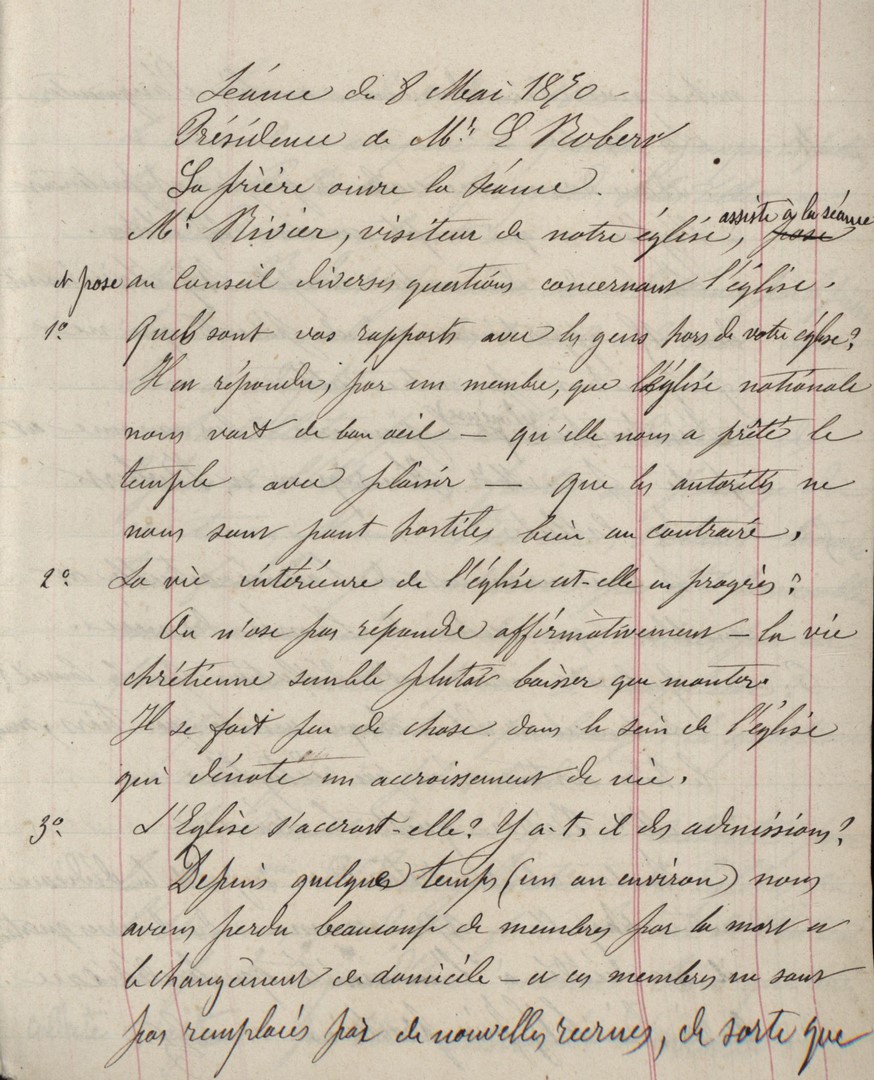 Séance du 8 Mai 1870 -
Présidence de Mr. L Robert
La prière ouvre la séance.
Mr. Rivier, visiteur de notre église, assiste à la séance pose
et pose au Conseil diverses questions concernant l'église.
1o. Quels sont vos rapports avec les gens hors de votre église?
Il est répondu, par un membre, que l'église nationale
nous voit de bon oeil — qu'elle nous a prêté le
temple avec plaisir — que les autorités ne
nous sont point hostiles bien au contraire.
2o. La vie intérieure de l'église est-elle en progrès?
On n'ose pas répondre affirmativement — la vie
chrétienne semble plutot baisser que monter.
Il se fait peu de chose dans le sein de l'église
qui dénote un accroissement de vie.
3o. L'Eglise s'accroit-elle? Y a-t-il des admissions?
Depuis quelques temps (un an environ) nous
avons perdu beaucoup de membres par la mort et
le changement de domicile — et ces membres ne sont
pas remplacés par de nouvelles recrues, de sorte que